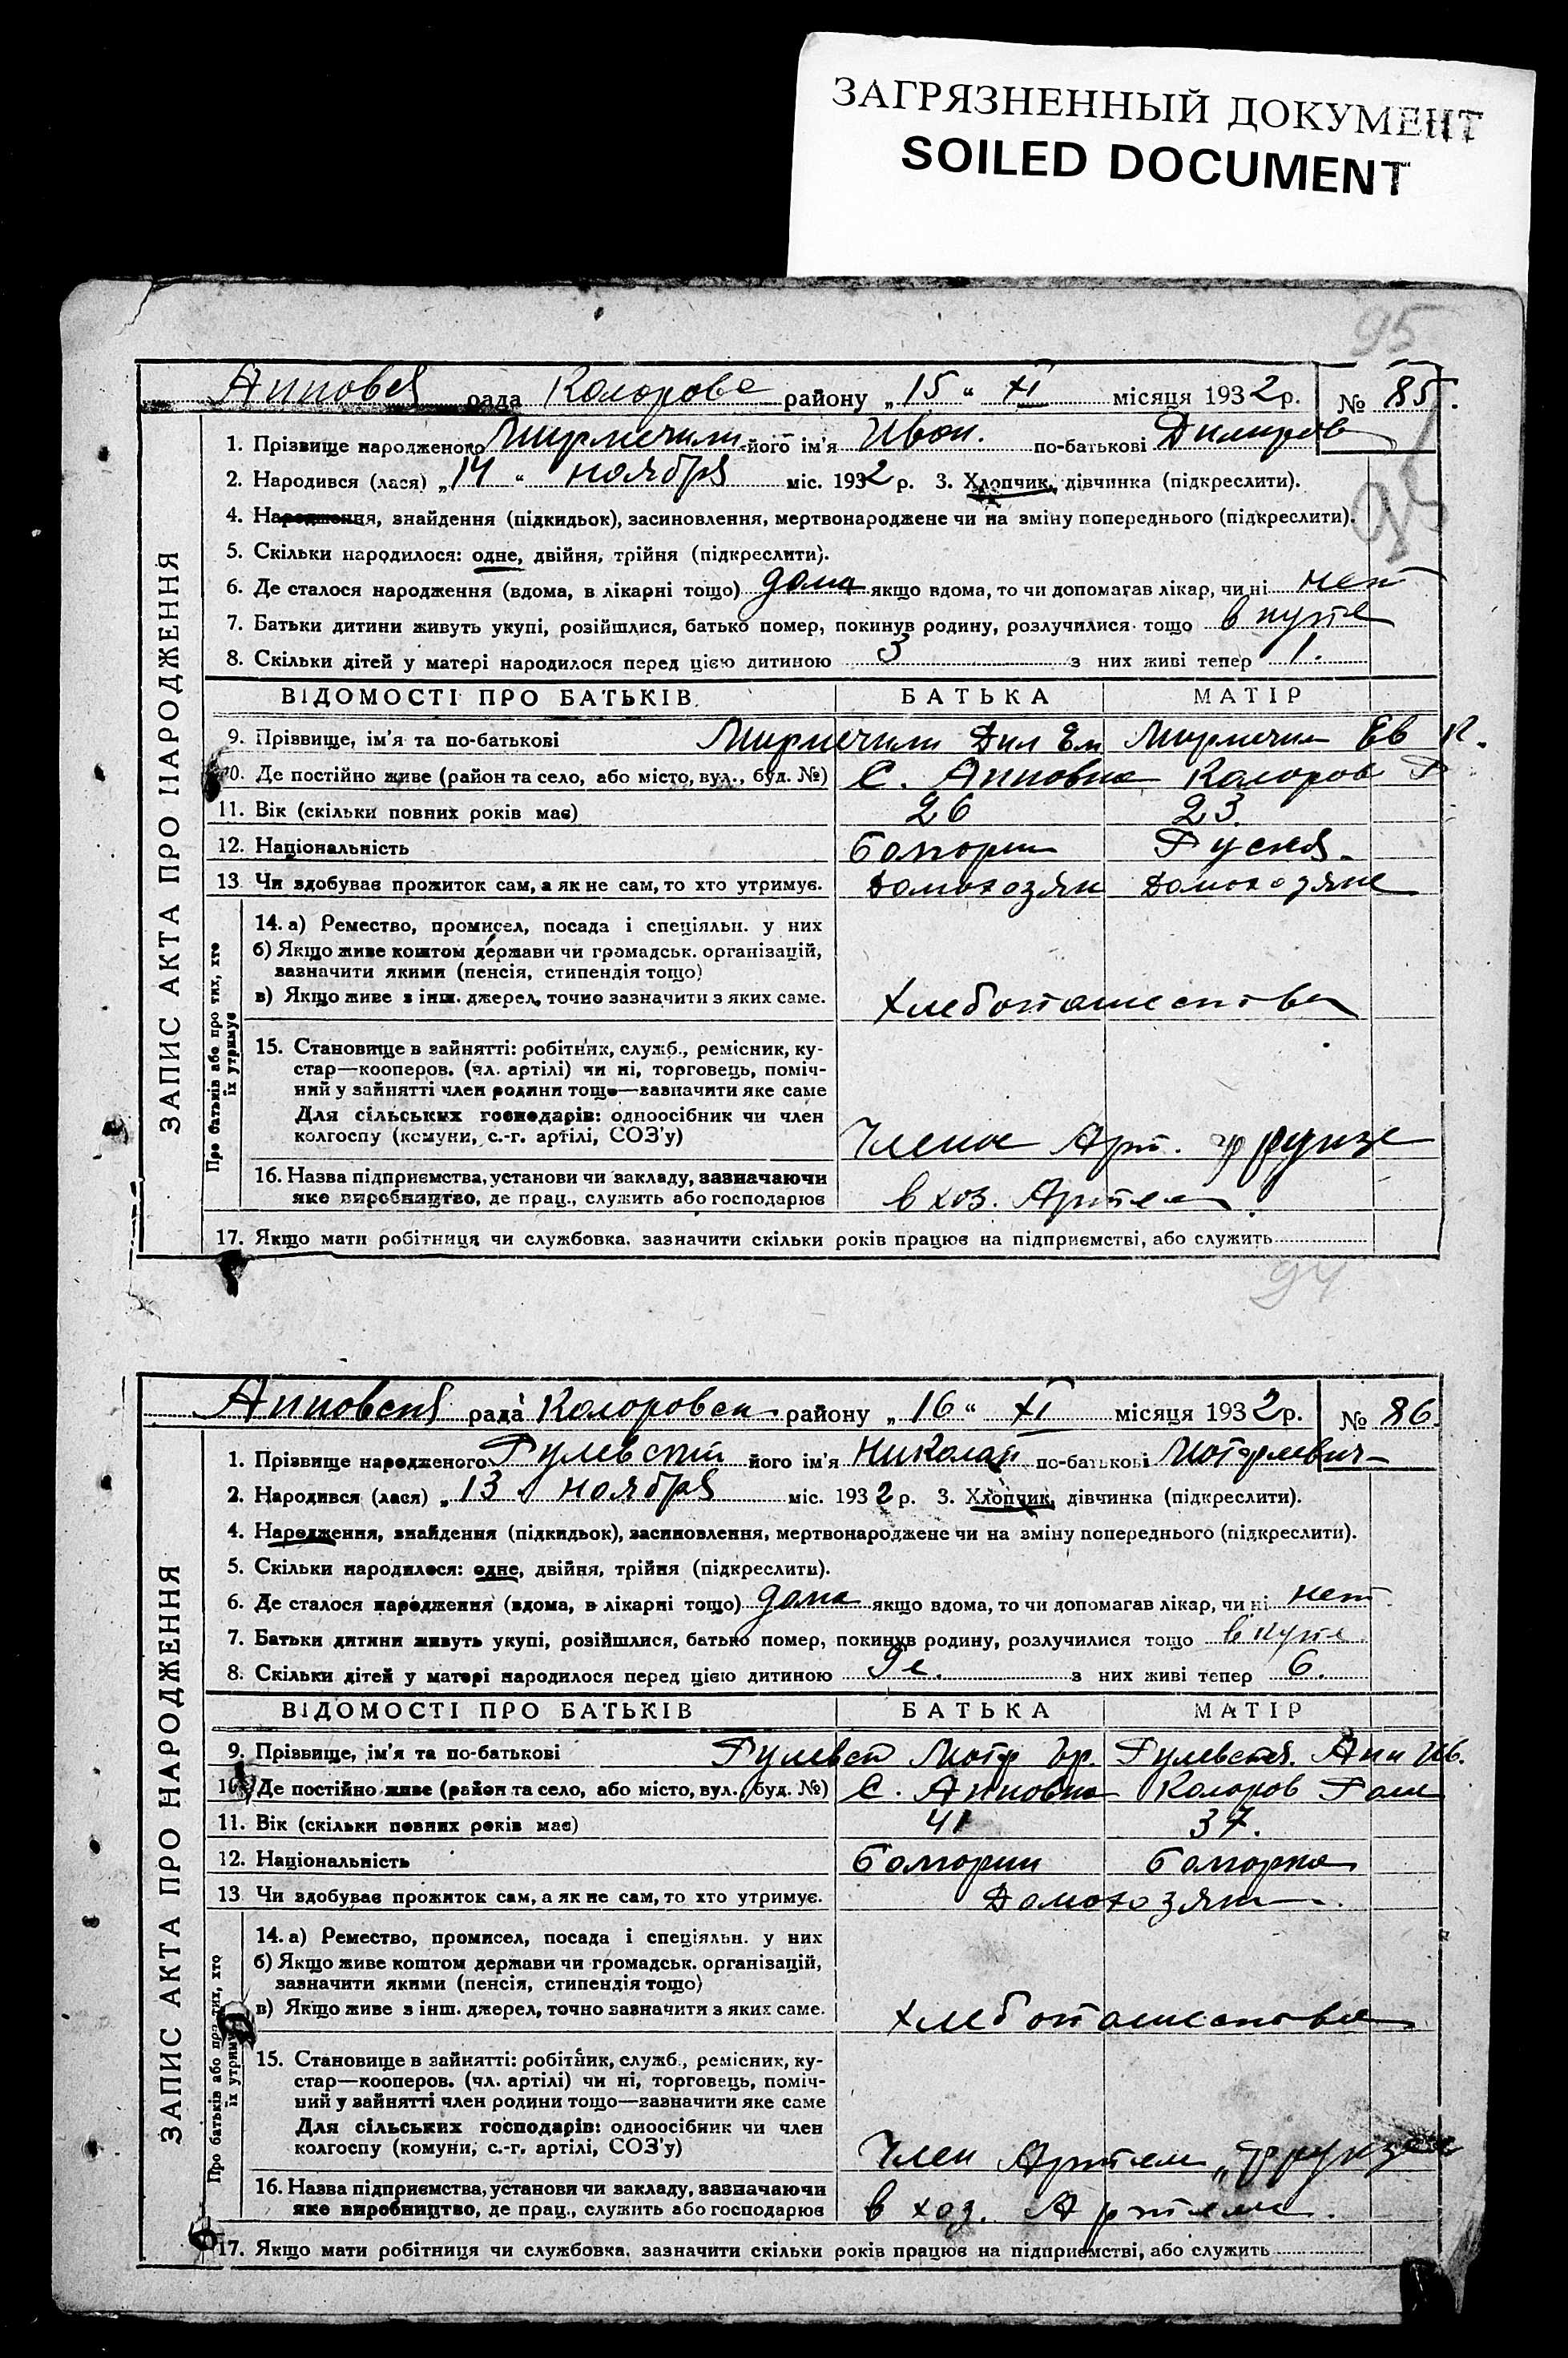 ЗАГРЯЗНЕННЫЙ ДОКУМЕНТ
SOILED DOCUMENT
95
рада Коларов района „15“ XI місяця 1932 р. № 85.
1. Прізвище народженого його ім'я Иван. по-батькові
2. Народився (лася) „14“ ноября міс. 1932 р. 3. Хлопчик, дівчинка (підкреслити).
4. Народження, знайдення (підкидьок), засиновлення, мертвонароджене чи на зміну попереднього (підкреслити).
5. Скільки народилося: одне, двійня, трійня (підкреслити).
6. Де сталося народження (вдома, в лікарні тощо) дома якщо вдома, то чи допомагав лікар, чи ні нет
7. Батьки дитини живуть укупі, розійшлися, батько помер, покинув родину, розлучилися тощо
8. Скільки дітей у матері народилося перед цією дитиною 3 з них живі тепер 1.
ЗАПИС АКТА ПРО НАРОДЖЕННЯ
ВІДОМОСТІ ПРО БАТЬКІВ. БАТЬКА МАТІР
9. Прізвище, ім'я та по-батькові
10. Де постійно живе (район та село, або місто, вул., буд. №) С. Анновка Коларов Р
11. Вік (скільки повних років має) 26 23.
12. Національність Болгорин Руская.
13 Чи здобував прожиток сам, а як не сам, то хто утримує. Домохозяин Домохозяйке
Про батьків або про тих, хто їх утримує
14. а) Ремество, промисел, посада і спеціяльн. у них
б) Якщо живе коштом держави чи громадськ. організацій,
зазначити якими (пенсія, стипендія тощо)
в) Якщо живе з інш. джерел, точно зазначити з яких саме. Хлебопашества
15. Становище в зайнятті: робітник, служб., ремісник, ку-
стар—кооперов. (чл. артілі) чи ні, торговець, поміч-
ний у зайнятті член родини тощо—зазначити яке саме
Для сільських господарів: одноосібник чи член
колгоспу (комуни, с.-г. артілі, СОЗ'у) Арт. Фрунзе
16. Назва підприємства, установи чи закладу, зазначаючи
яке виробництво, де прац., служить або господарює в хоз. Артели
17. Якщо мати робітниця чи службовка, зазначити скільки років працює на підприємстві, або служить
94
Анновская рада Коларовск району „16“ XI місяця 1932 р. № 86.
1. Прізвище народженого Гулевский його ім'я Николай по-батькові
2. Народився (лася) „13 ноября міс. 1932 р. 3. Хлопчик, дівчинка (підкреслити).
4. Народження, знайдення (підкидьок), засиновлення, мертвонароджене чи на зміну попереднього (підкреслити).
5. Скільки народилося: одне, двійня, трійня (підкреслити).
6. Де сталося народження (вдома, в лікарні тощо) дома якщо вдома, то чи допомагав лікар, чи ні нет
7. Батьки дитини живуть укупі, розійшлися, батько помер, покинув родину, розлучилися тощо
8. Скільки дітей у матері народилося перед цією дитиною з них живі тепер 6.
ЗАПИС АКТА ПРО НАРОДЖЕННЯ
ВІДОМОСТІ ПРО БАТЬКІВ БАТЬКА МАТІР
9. Прізвище, ім'я та по-батькові Гулевск Гулевская. Анн Ив.
10. Де постійно живе (район та село, або місто, вул., буд. №) С. Анновка Коларов
11. Вік (скільки повних років має) 41 37.
12. Національність Болгорин Болгорка
13 Чи здобував прожиток сам, а як не сам, то хто утримує. Домохозяин
Про батьків або про тих, хто їх утримує
14. а) Ремество, промисел, посада і спеціяльн. у них
б) Якщо живе коштом держави чи громадськ. організацій,
зазначити якими (пенсія, стипендія тощо)
в) Якщо живе з інш. джерел, точно зазначити з яких саме. Хлебопашества
15. Становище в зайнятті: робітник, служб., ремісник, ку-
стар—кооперов. (чл. артілі) чи ні, торговець, поміч-
ний у зайнятті член родини тощо—зазначити яке саме
Для сільських господарів: одноосібник чи член
колгоспу (комуни, с.-г. артілі, СОЗ'у) Член Артели „Фрунзе
16. Назва підприємства, установи чи закладу, зазначаючи
яке виробництво, де прац., служить або господарює в хоз. Артели.
17. Якщо мати робітниця чи службовка, зазначити скільки років працює на підприємстві, або служить